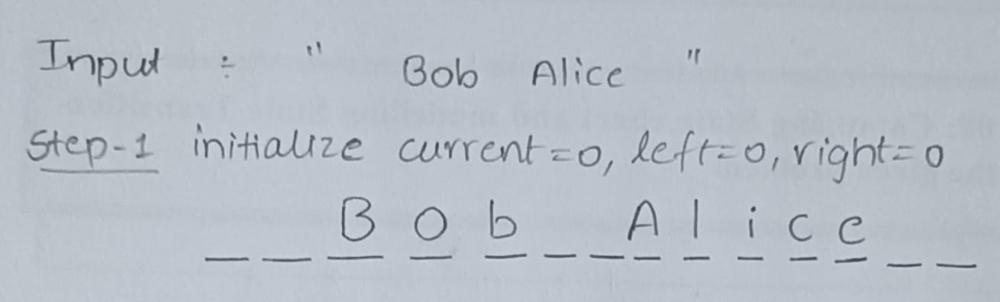 Input : " Bob Alice "
Step-1 initialize current=0, left=0, right=0
B o b A l i c e
_ _ _ _ _ _ _ _ _ _ _ _ _ _